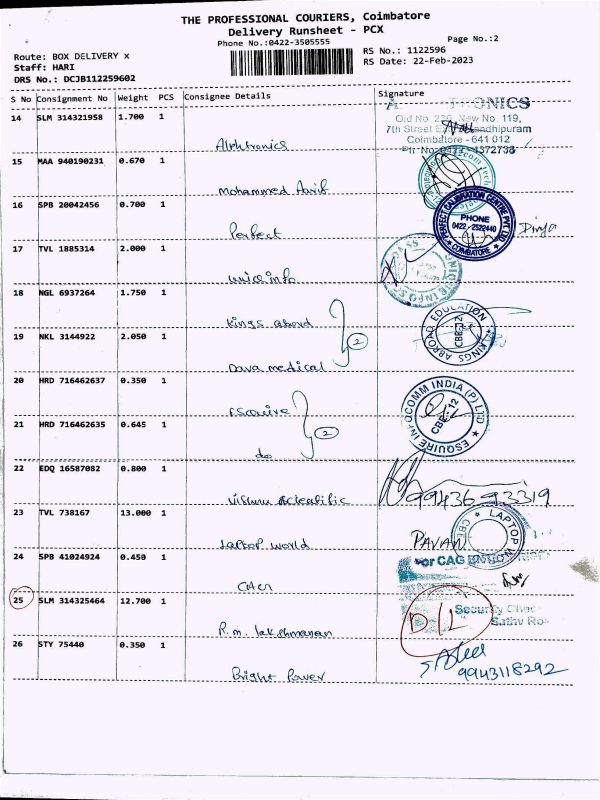 THE PROFESSIONAL COURIERS, Coimbatore
Delivery Runsheet - PCX
Phone No.:0422-3505555
Page No.:2
Route: BOX DELIVERY x
RS No.: 1122596
Staff: HARI
RS Date: 22-Feb-2023
DRS No.: DCJB112259602
S No Consignment No Weight PCS Consignee Details Signature
14 SLM 314321958 1.700 1
ONICS
Old No. New No. 119,
7th Street Gandhipuram
Coimbatore - 641 012
15 MAA 940190231 0.670 1
Mohammed Arif
16 SPB 20042456 0.700 1
Perfect
PERFECT CALIBRATION CENTRE PVT LTD
PHONE
0422 - 2522440
COIMBATORE
Divya
17 TVL 1885314 2.000 1
unice info
18 NGL 6937264 1.750 1
Kings abord
KINGS ABROAD EDUCATION
CBE-12
19 NKL 3144922 2.050 1
2
Dava medical
20 HRD 716462637 0.350 1
Esquire
ESQUIRE INFOCOMM INDIA (P) LTD
CBE-12
21 HRD 716462635 0.645 1
2
do
22 EDQ 16587082 0.800 1
Vishnu Scientific
99436 93319
23 TVL 738167 13.000 1
Laptop world
PAVAN
LAPTOP
24 SPB 41024924 0.450 1
For CAG
25 SLM 314325464 12.700 1
R.m. lakshmanan
D/L
Security
26 STY 75440 0.350 1
Bright Power
9943118292